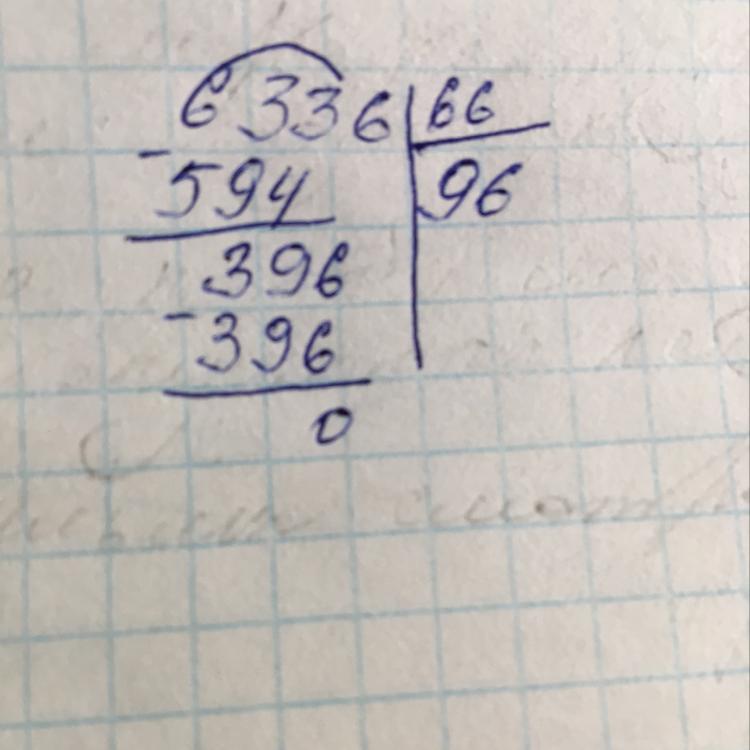 6336 | 66
- 594 | 96
396
- 396
0